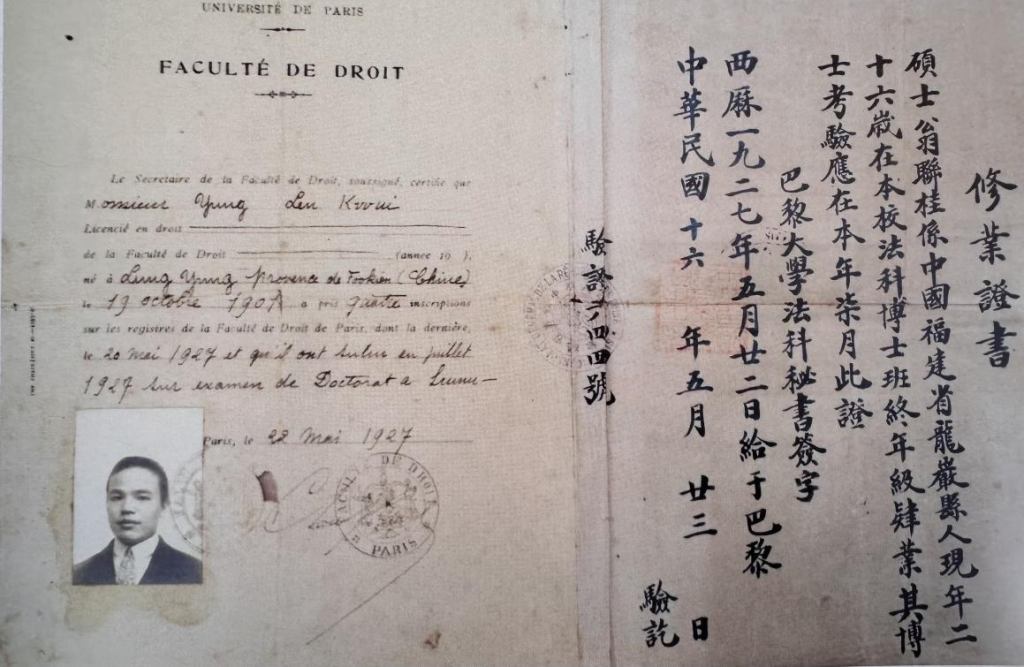 UNIVERSITÉ DE PARIS
FACULTÉ DE DROIT
Le Secretaire de la Faculté de Droit, soussigné, certifie que
Monsieur Yung Len Kwui
Licencié en droit
de la Faculté de Droit (année 19 ),
né à Lung Yung provence de Fookien (Chine)
le 19 octobre 1901 a pris quatre inscriptions
sur les registres de la Faculté de Droit de Paris, dont la dernière,
le 20 mai 1927 et qu'il en juillet
1927 examen de Doctorat a
Paris, le 22 Mai 1927
FACULTÉ DE DROIT
PARIS
修業證書
碩士翁聯桂係中國福建省龍巖縣人現年二
十六歲在本校法科博士班終年級肄業其博
士考驗應在本年柒月此證
巴黎大學法科秘書簽字
西曆一九二七年五月廿二日給于巴黎
中華民國十六年五月廿三日
驗訖
驗診六四四號